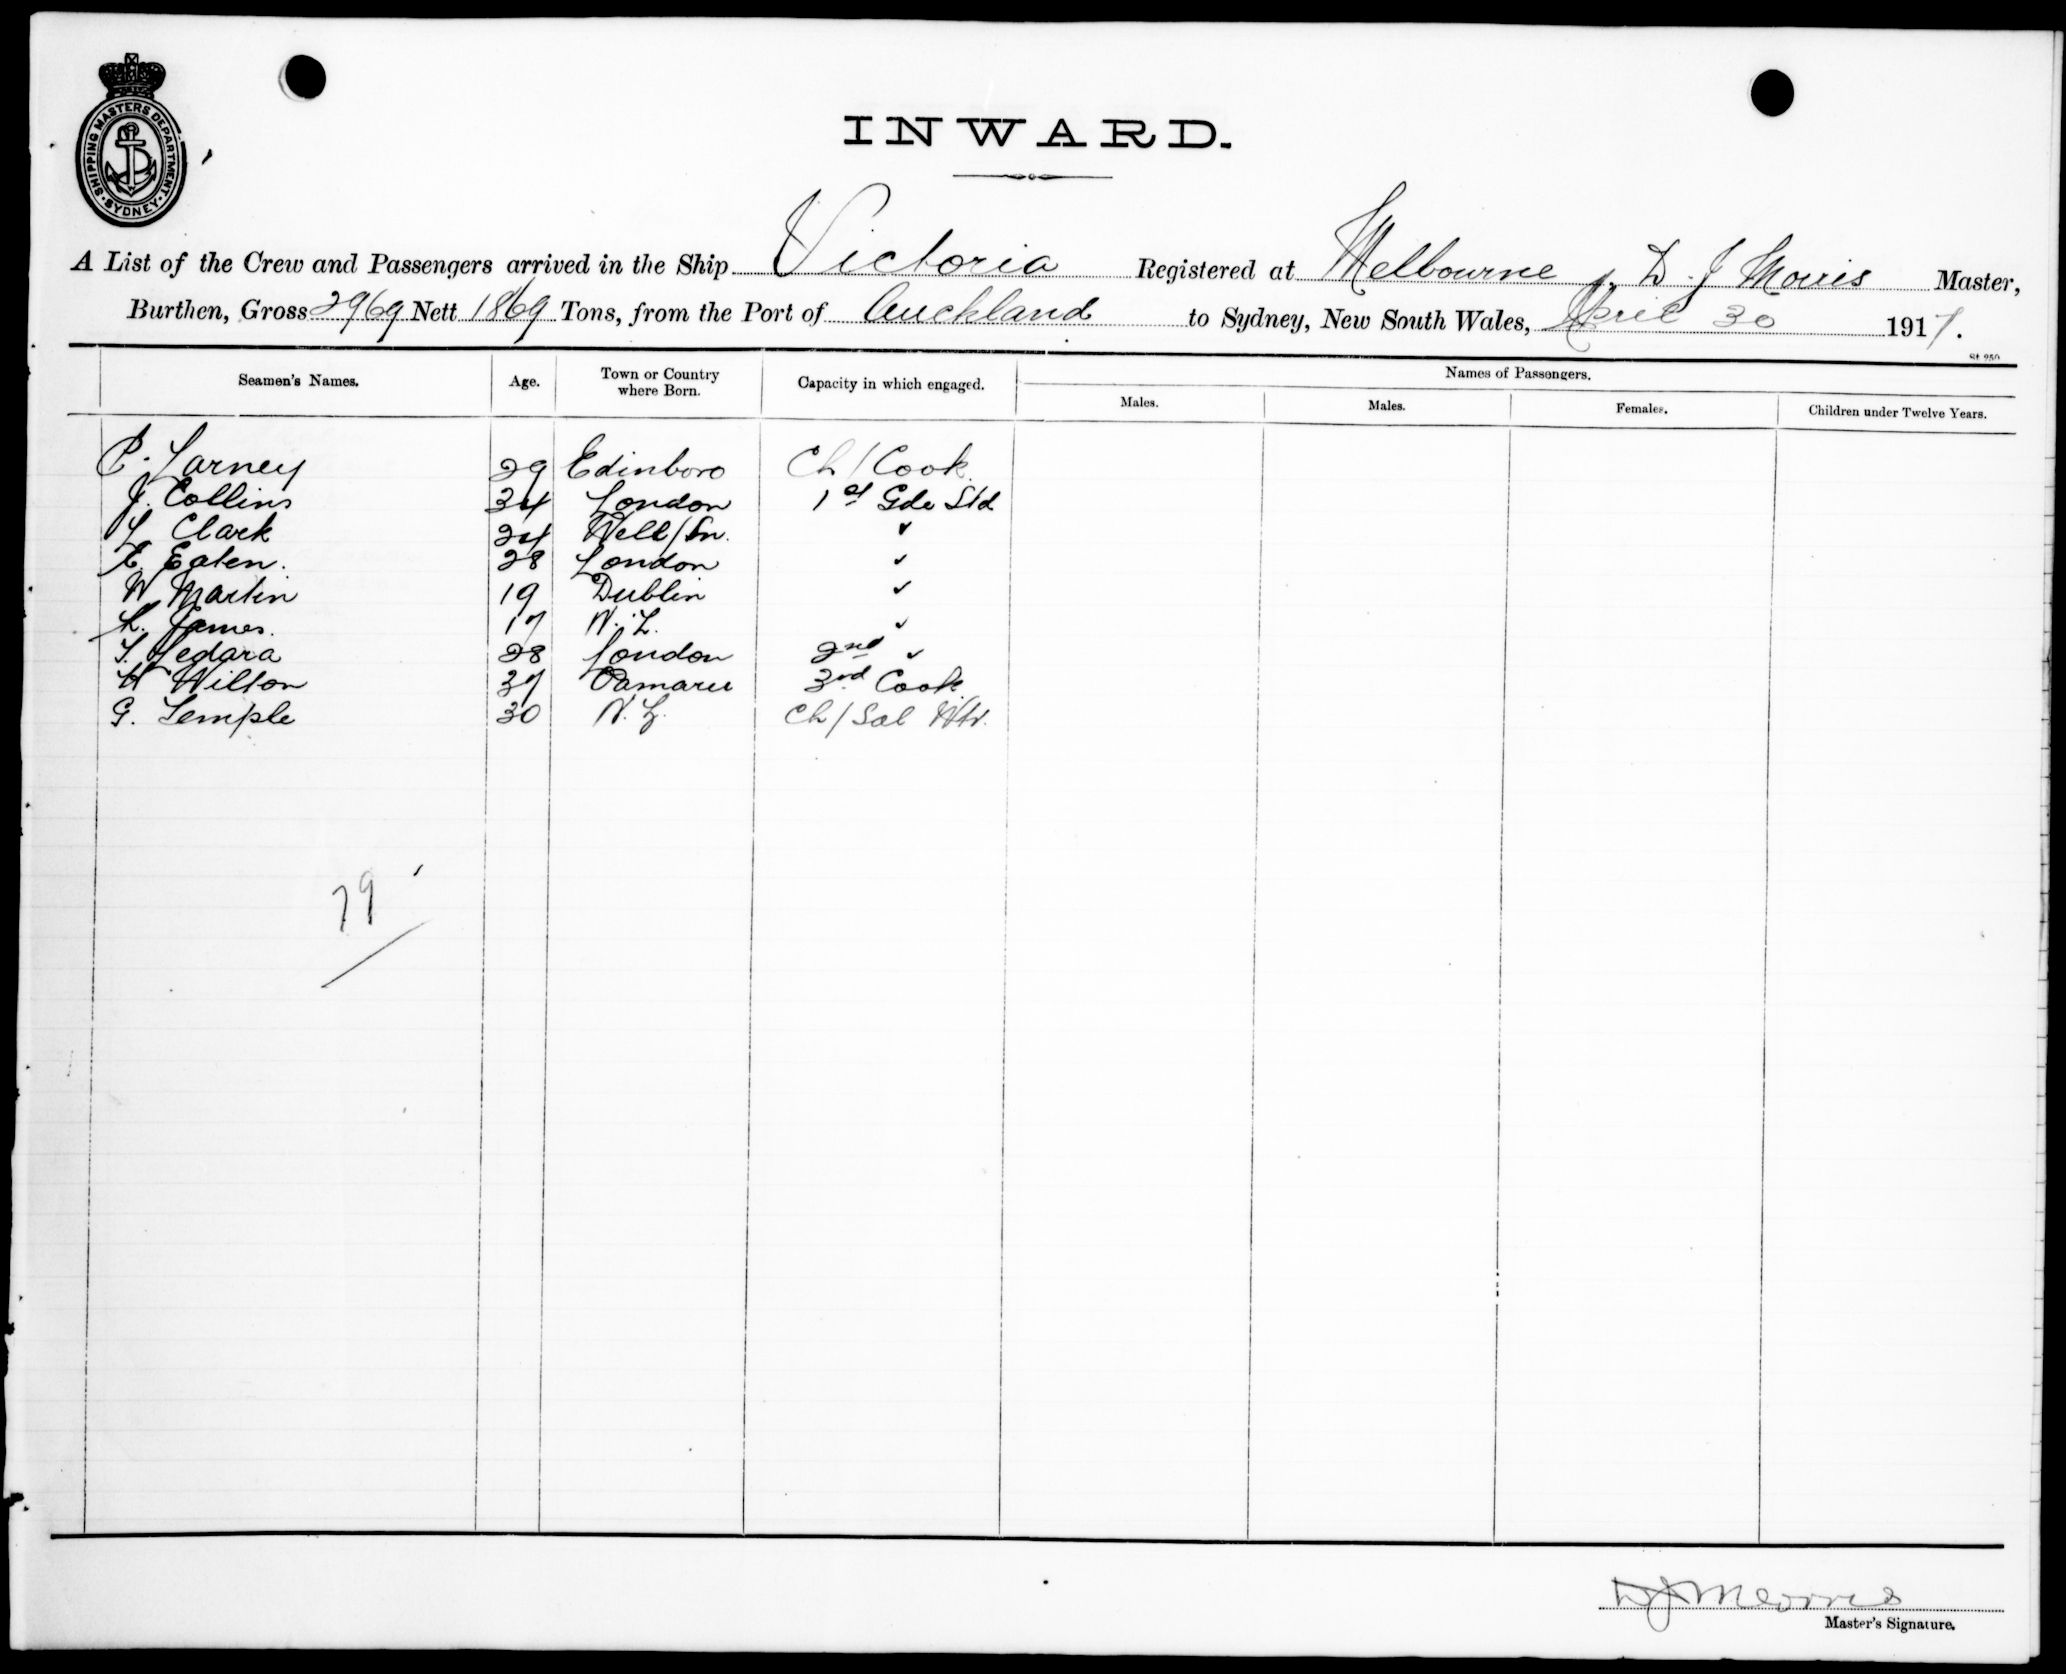 SHIPPING MASTERS DEPARTMENT
SYDNEY
INWARD.
A List of the Crew and Passengers arrived in the Ship Victoria Registered at Melbourne, D. J Morris Master,
Burthen, Gross 2969 Nett 1869 Tons, from the Port of Auckland to Sydney, New South Wales, April 30 1917.
St 250
Seamen's Names. Age. Town or Country where Born. Capacity in which engaged. Names of Passengers.
Males. Males. Females. Children under Twelve Years.
P. Larney 29 Edinboro Ch/Cook
J. Collins 34 London 1st Gde Std
L Clark 24 Well/tn. ✓
E. Eaten. 28 London ✓
W Martin 19 Dublin ✓
James. 17 N.Z. ✓
T. 28 London 2nd ✓
H Wilton 37 Oamaru 3rd Cook
G. Temple 30 N.Z. Ch/Sal Wtr.
79
D J Morris
Master's Signature.